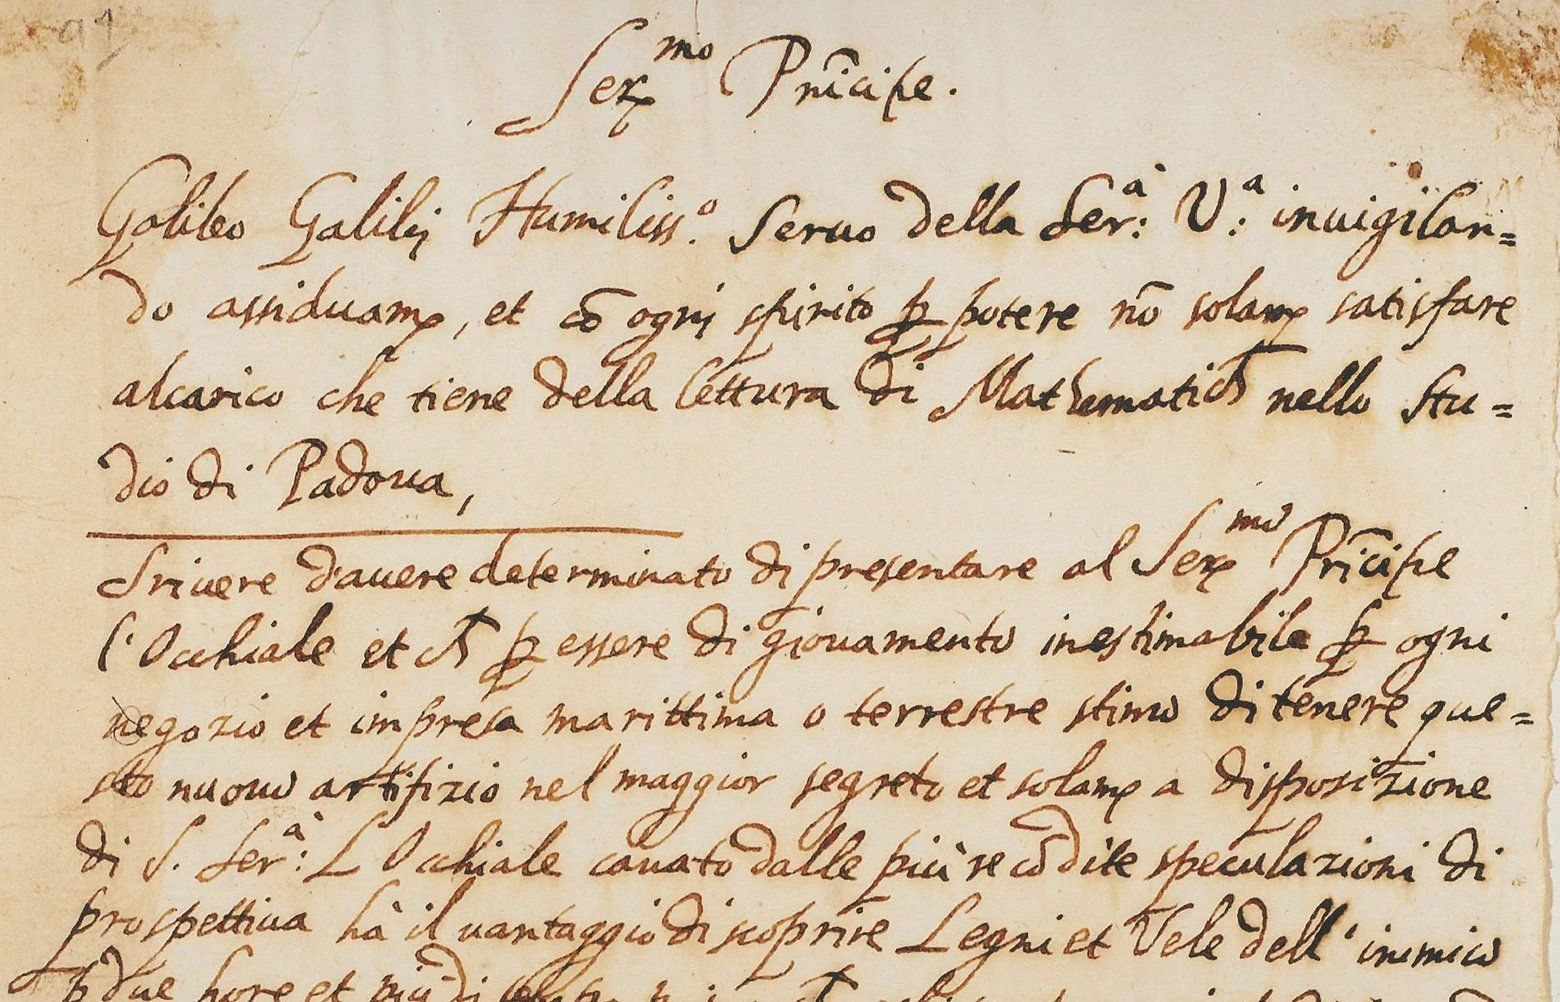 91
Ser.mo Prĩcipe.
Galileo Galilej Humiliss.o Seruo della Ser.a: V.a: inuigilan=
do assiduam., et cõ ogni spirito p potere nõ solam. satisfare
alcarico che tiene della lettura di Mathematich nello stu=
dio di Padoua,
Sriuere d'auere determinato di presentare al Ser.mo Prĩcipe
l'Occhiale et ch p essere di giouamento inestimabile p ogni
negozio et impresa marittima o terrestre stimo di tenere que=
sto nuouo artifizio nel maggior segreto et solam. a disposizione
di S. Ser.a: L Occhiale cauato dalle più recõdite speculazioni di
prospettiua hà il uantaggio di scoprire Legni et Vele dell' inimico
p due hore et più di